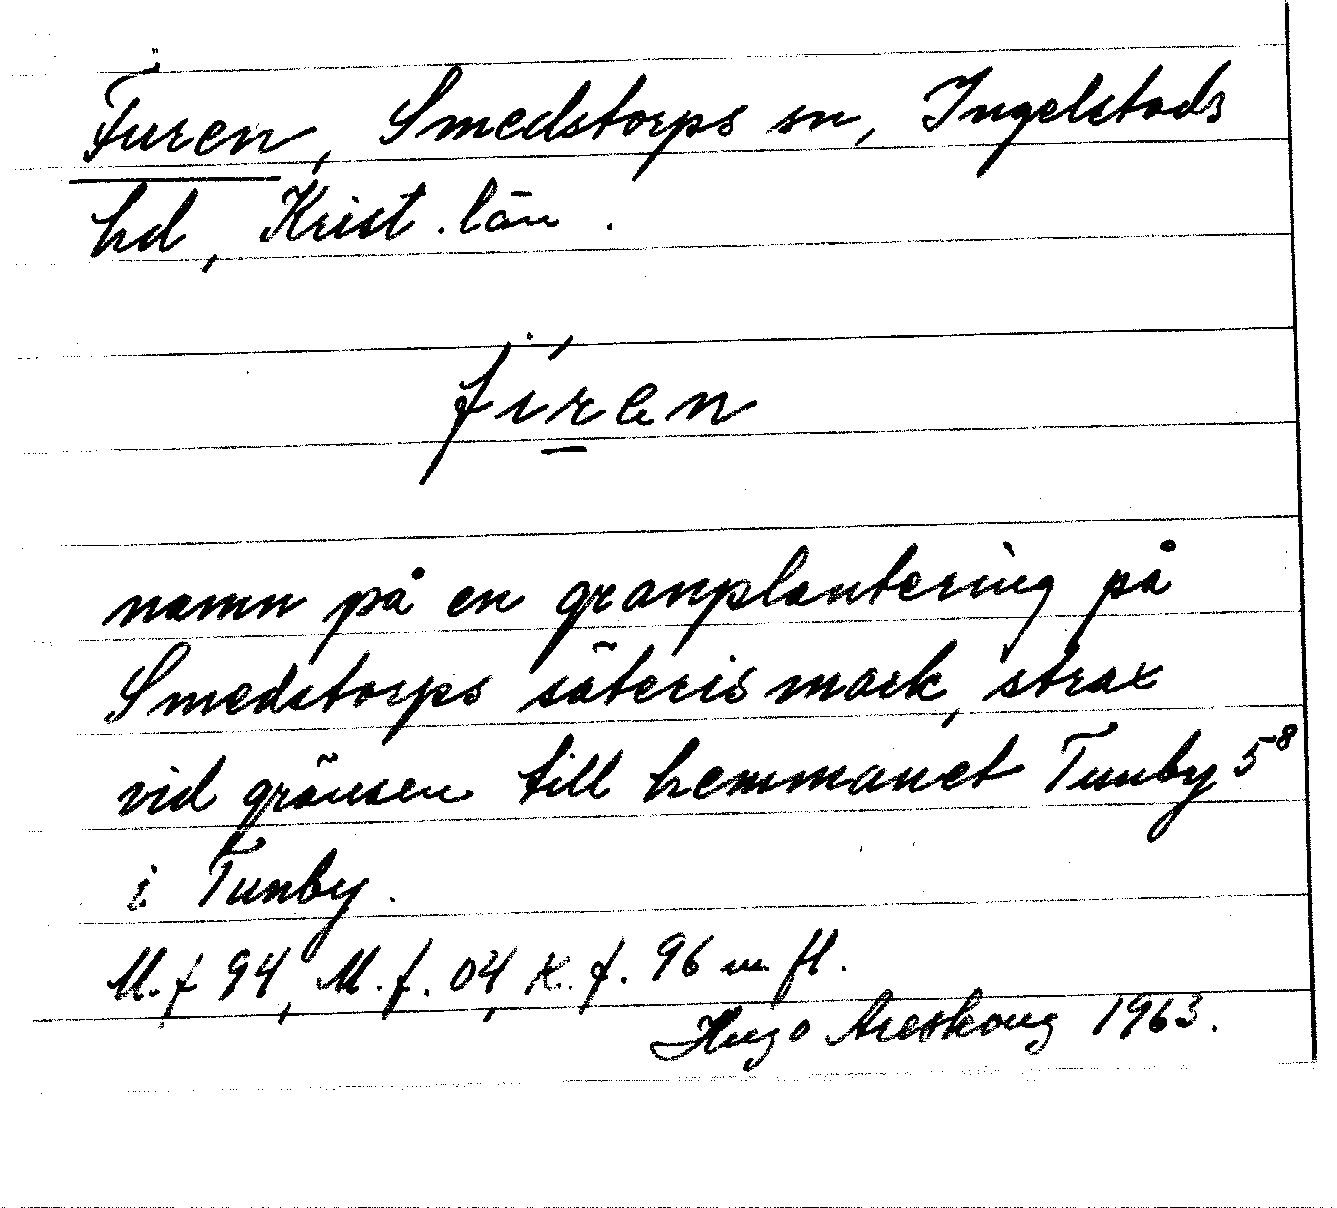 Furen, Smedstorps sn, Ingelstads
hd, Krist. län.
fi̇́ren
namn på en granplantering på
Smedstorps säteris mark, strax
vid gränsen till hemmanet Tunby 5⁸
i Tunby.
M.f 94, M.f. 04, K.f. 96 m fl.
Hugo Areskoug 1963.